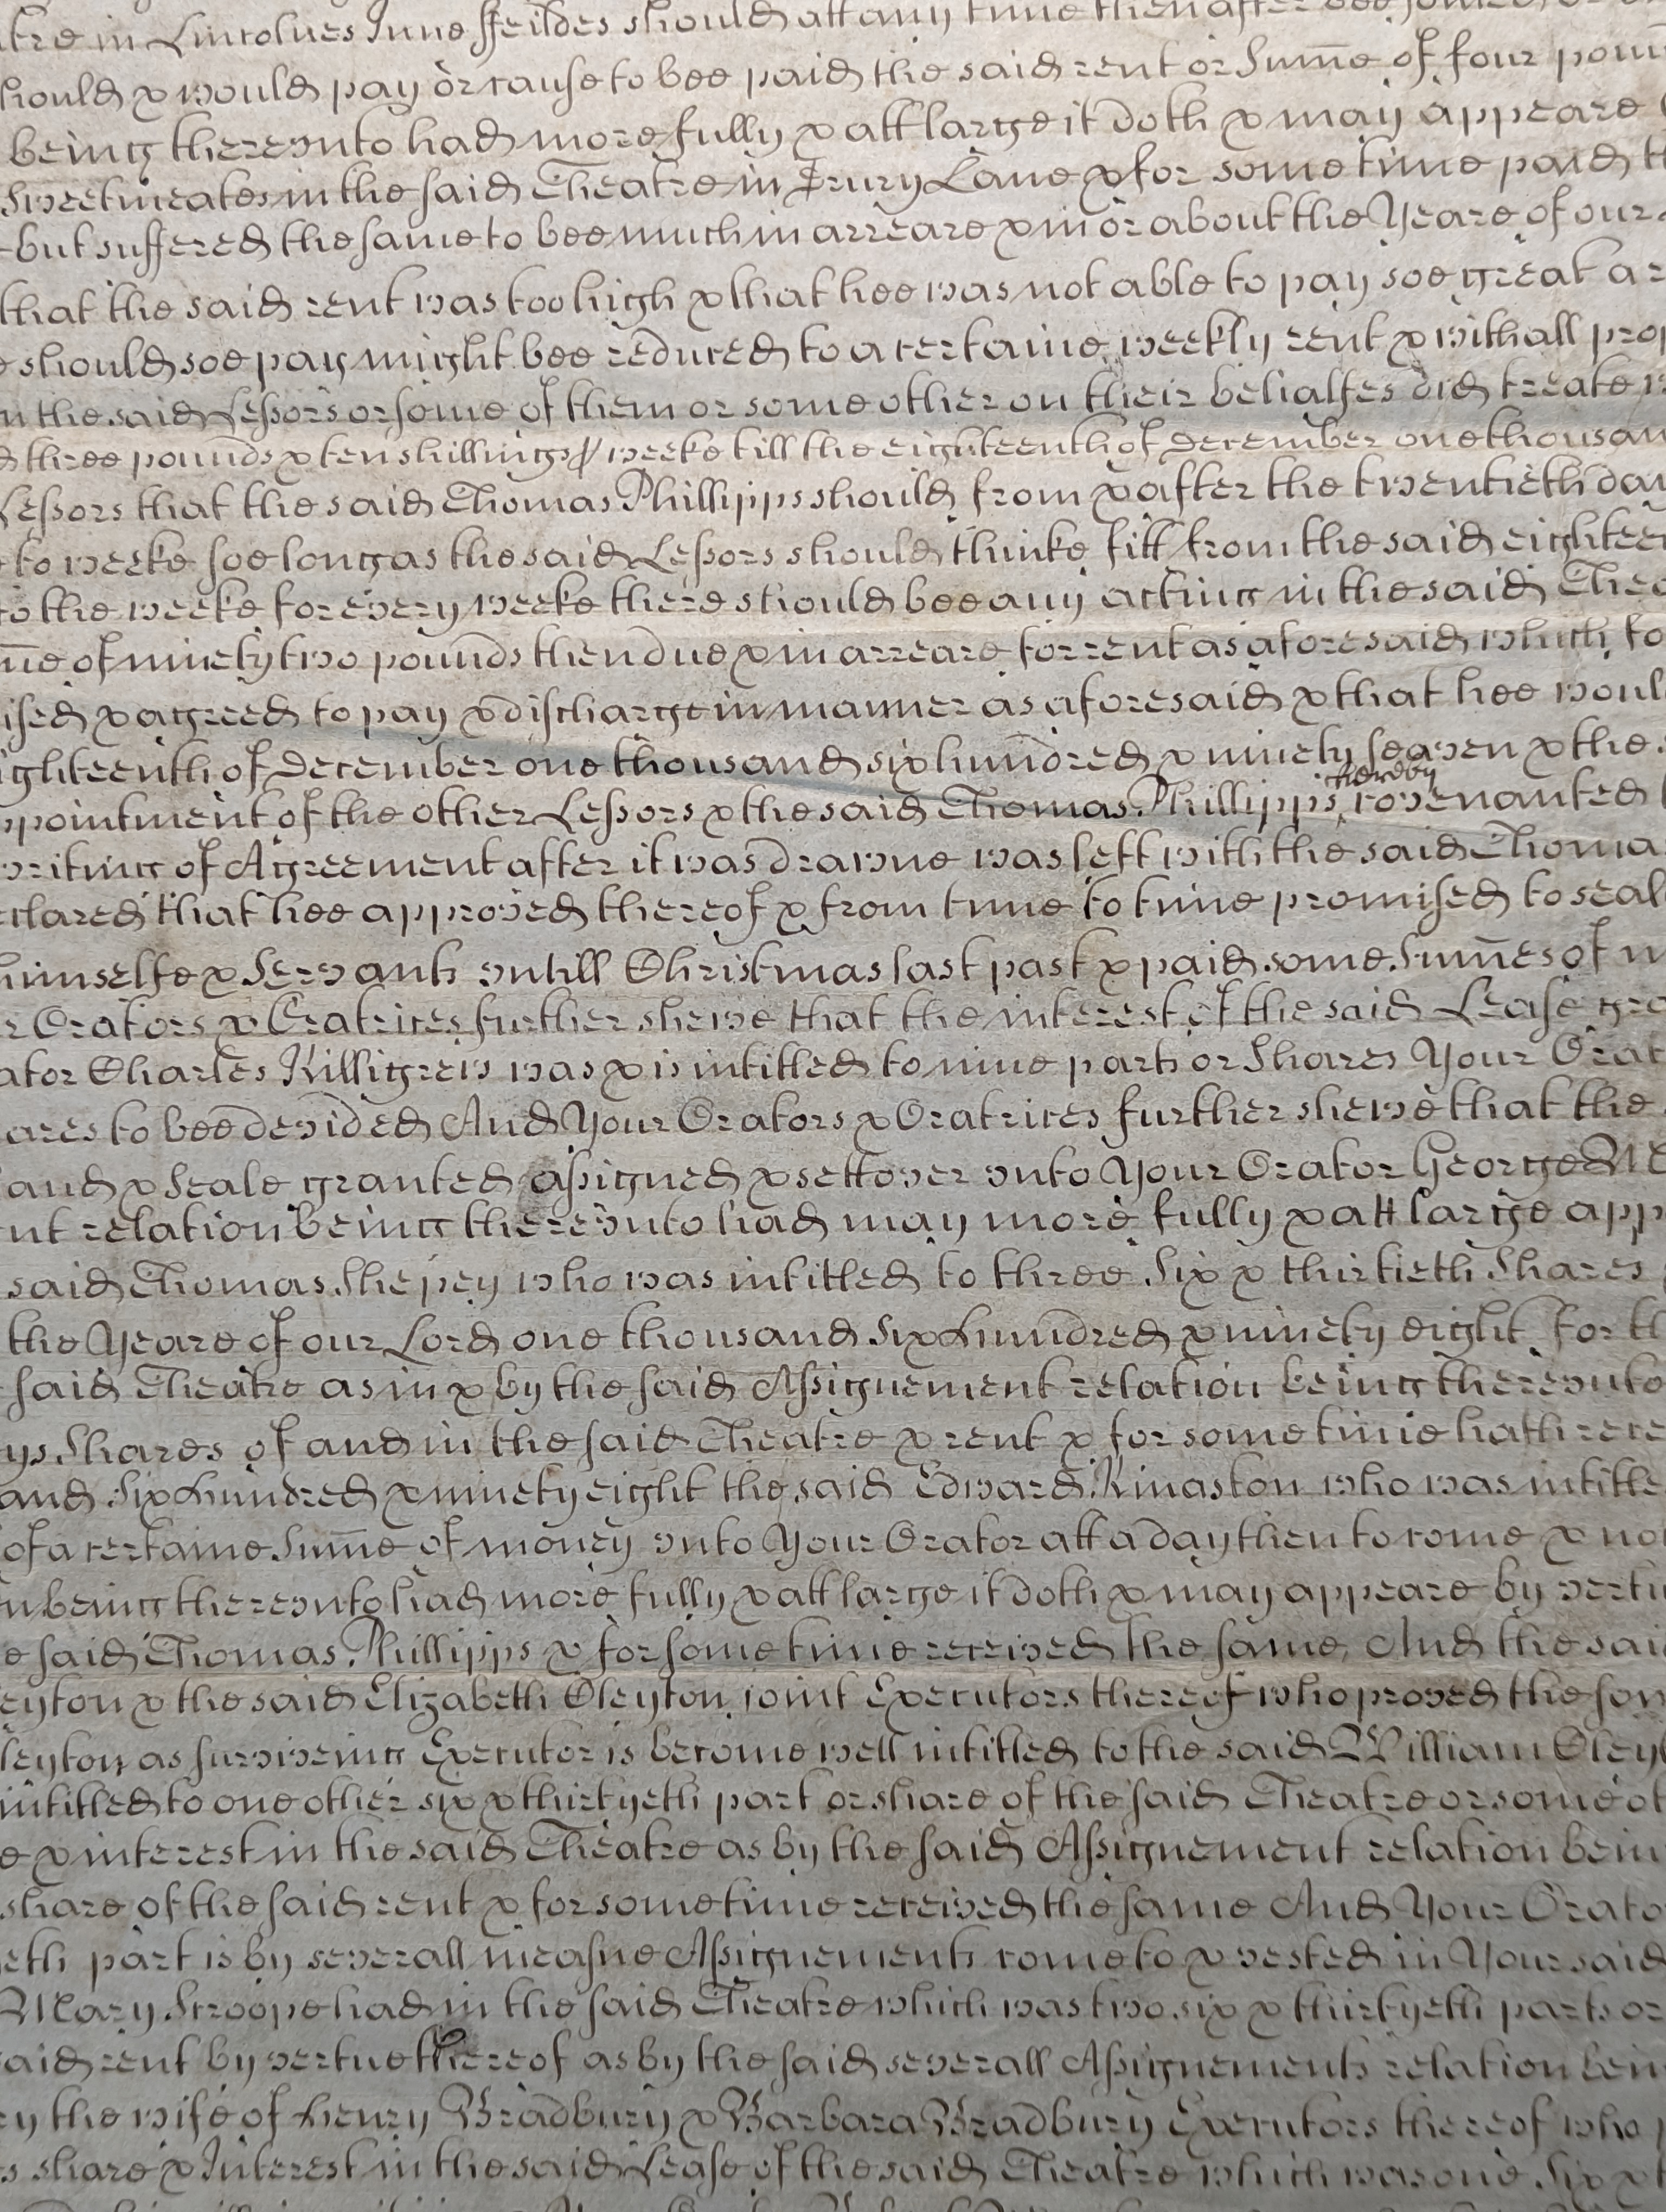 tre in Lincolnes Inne ffeildes should att any time then after bee
hould & would pay or cause to bee paid the said rent or Sum̄e of four poun
being thereunto had more fully & att large it doth & may appeare
Sweetmeates in the said Theatre in Drury Lane & for some time paid th
but suffered the same to bee much in arreare & in or about the Yeare of our
that the said rent was too high & that hee was not able to pay soe great a r
e should soe pay might bee reduced to a certaine weekly rent & withall prop
n the said Lessors or some of them or some other on their behalfes did treate w
d three pounds & ten shillings ꝑ weeke till the eighteenth of December one thousan
Lessors that the said Thomas Phillipps should from & after the twentieth day
to weeke soe long as the said Lessors should thinke fitt from the said eighteen
to the weeke for every weeke there should bee any acting in the said Thea
m̄e of ninety two pounds then due & in arreare for rent as aforesaid which to
ised & agreed to pay & discharge in manner as aforesaid & that hee woul
ighteenth of December one thousand six hundred & ninety seaven & the
ppointment of the other Lessors & the said Thomas Phillipps thereby covenanted
writing of Agreement after it was drawne was left with the said Thoma
eclared that hee approved thereof & from time to time promised to seal
himselfe & Servants untill Christmas last past & paid some Sum̄es of m
r Orators & Oratrices further shewe that the interest of the said Lease gra
ator Charles Killigrew was & is intitled to nine parts or Shares Your Orat
ares to bee devided And Your Orators & Oratrices further shewe that the
and & Seale granted assigned & sett over unto Your Orator George
nt relation being thereunto had may more fully & att large app
said Thomas Shepey who was intitled to three Six & thirtieth Shares
the Yeare of our Lord one thousand Six hundred & ninety eight for th
said Theatre as in & by the said Assignement relation being thereunto
ys Shares of and in the said Theatre & rent & for some time hath rece
and Six hundred & ninety eight the said Edward Kinaston who was intitle
of a certaine Sum̄e of money unto Your Orator att a day then to come & no
n being thereunto had more fully & att large it doth & may appeare by vertu
e said Thomas Phillipps & for some time received the same And the sai
leyton & the said Elizabeth Cleyton joint Executors thereof who proved the
leyton as surviveing Executor is become well intitled to the said William Cleyt
intitled to one other six & thirtyeth part or share of the said Theatre or some ot
e & interest in the said Theatre as by the said Assignement relation bein
share of the said rent & for some time received the same And Your Orato
eth part is by severall measne Assignements come to & vested in Your said
Mary Scroope had in the said Theatre which was two six & thirtyeth parts or
aid rent by vertue thereof as by the said severall Assignements relation bein
ry the wife of Henry Bradbury & Barbara Bradbury Executors thereof who
s share & Interest in the said Lease of the said Theatre which was one Six & t